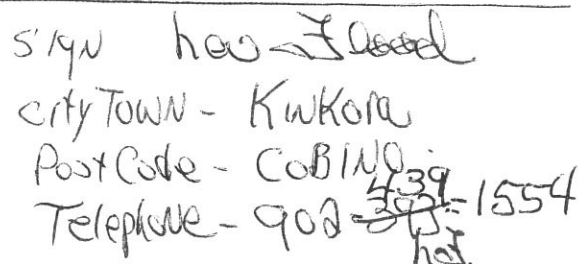 Sign
City Town - Kinkora
Post Code - COB1NO
Telephone - 902 439-1554